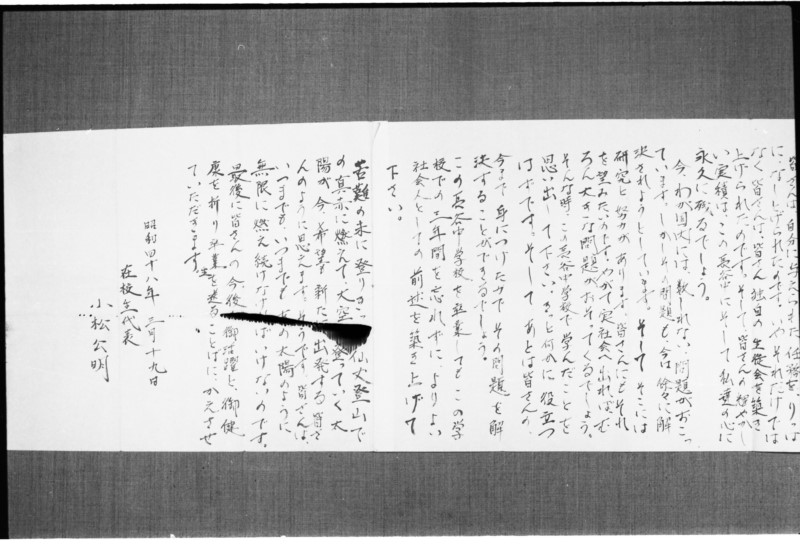 皆さんは、自分に与えられた任務をりっぱ
に、なしとげられたのです。いや、それだけでは
なく皆さんは、皆さん独自の生徒会を築き
上げられたのです。そして、皆さんの輝やかし
い実績は、この長谷中に、そして私達の心に
永久に残るでしょう。
今、わが国内には、数しれない問題がおこっ
ています。しかしその問題も今は徐々に解
決されようとしています。そしてそこには
研究と努力があります。皆さんにもそれ
を望みたいのです。やがて実社会へ出ればむ
ろん大きな問題がおそってくるでしょう。
そんな時、この長谷中学校で学んだことを
思い出して下さい。きっと何かに役立つ
はずです。そして、あとは皆さんが、
今まで身につけた力で、その問題を解
決することができるでしょう。
この長谷中学校を卒業しても、この学
校での三年間を忘れずに、よりよい
社会人としての前途を築き上げて
下さい。
苦難の末に登りか 仙丈登山で
の真赤に燃えて、大空 登っていく太
陽が、今、希望も新た 出発する皆さ
んのように思えます。そうです。皆さんは、
いつまでも、いつまでも、 の太陽のように
無限に燃え続けなければいけないのです。
最後に皆さんの今後 御活躍と、御健
康を祈り卒業生を送ることばに、かえさせ
ていただきます。
昭和四十八年三月十九日
在校生代表
小松公明